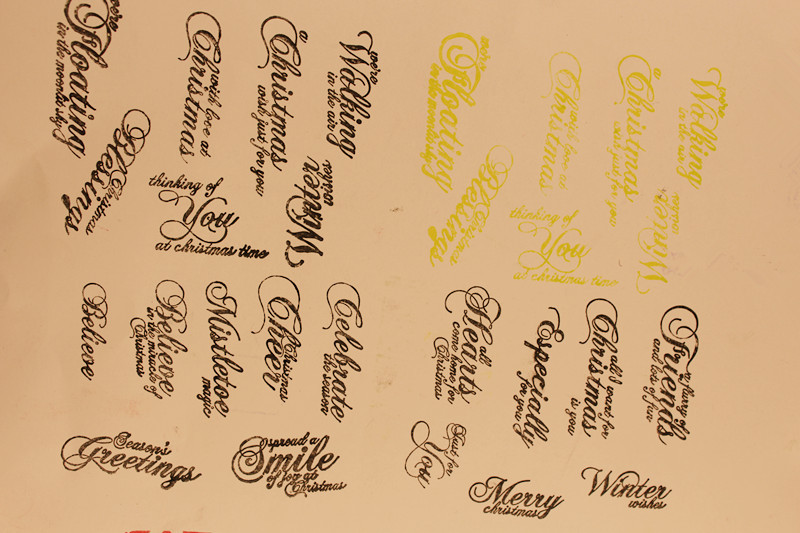 we're
Floating
in the moonlit sky
with love at
Christmas
a
Christmas
wish just for you
we're
Walking
in the air
Christmas
Blessings
thinking of
You
at christmas time
Winter
wishes
we're
Floating
in the moonlit sky
with love at
Christmas
a
Christmas
wish just for you
we're
Walking
in the air
Christmas
Blessings
thinking of
You
at christmas time
Winter
wishes
Believe
Believe
in the miracle of
Christmas
Mistletoe
magic
Christmas
Cheer
Celebrate
the season
Season's
Greetings
spread a
Smile
of joy at
Christmas
all
Hearts
come home for
Christmas
Especially
for you
all I want for
Christmas
is you
a flurry of
Friends
and lots of fun
Just for
You
Merry
christmas
Winter
wishes